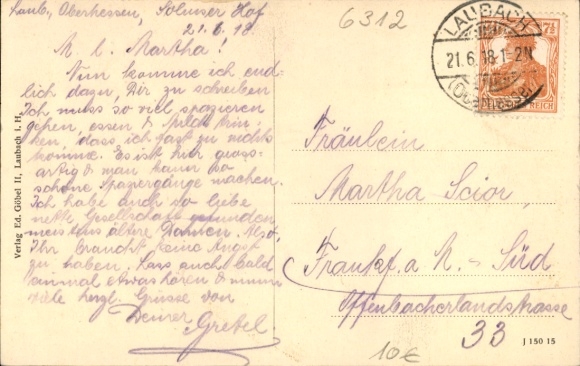 Laub., Oberhessen, Solmser Hof
21.6.18.
M. l. Martha!
Nun komme ich end-
lich dazu, Dir zu schreiben
Ich muss so viel spazieren
gehen, essen & Milch trin-
ken, dass ich fast zu nichts
komme. Es ist hier gross-
artig & man kann so
schöne Spaziergänge machen.
Ich habe auch so liebe
nette Gesellschaft gefunden
meistens ältere Damen. Also,
Ihr braucht keine Angst
zu haben. Lass auch bald
einmal etwas hören & nimm
viele herzl. Grüsse von
Deiner Gretel.
Verlag Ed. Göbel II, Laubach i. H.
6312
LAUBACH
21.6.18.1-2N
(OBERHESSEN)
7½
Fräulein
Martha Scior,
Frankf. a M. - Süd
Offenbacherlandstrasse
33
10€
J 150 15